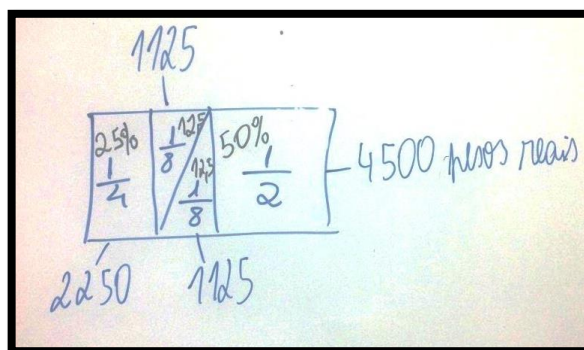 1125
25% 1/4
1/8 12,5
12,5 1/8
50% 1/2
4500 pesos reais
2250
1125